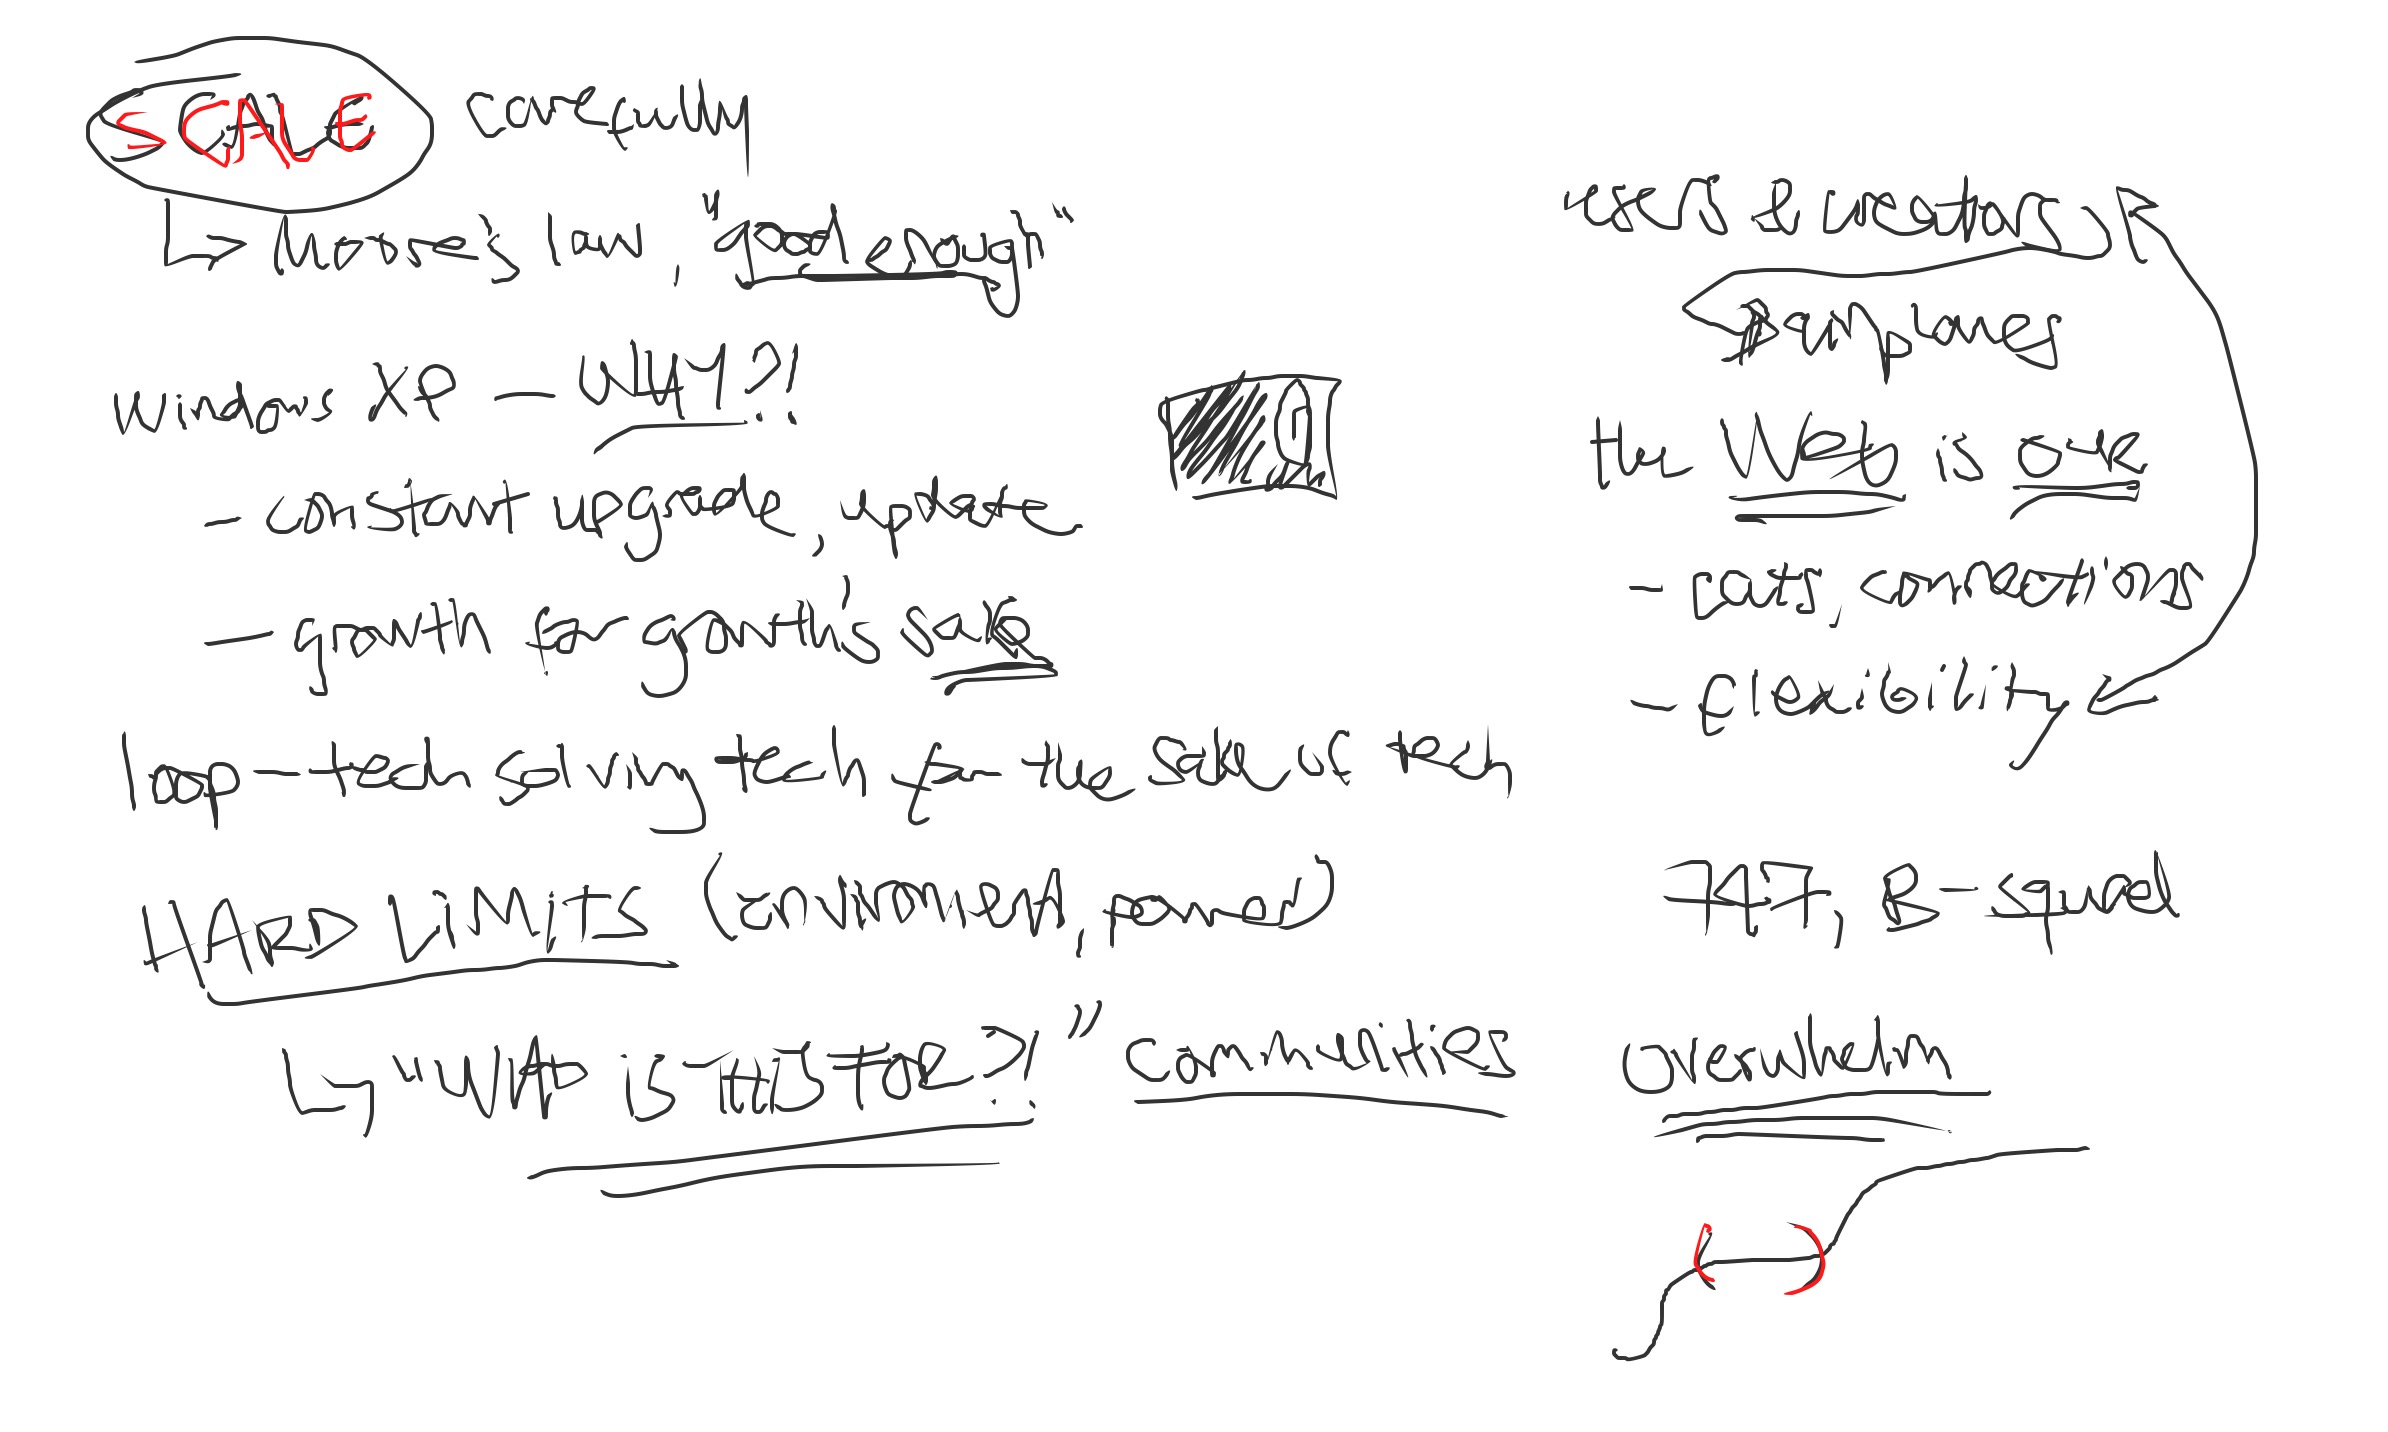 SCALE carefully
Moore's law, "good enough"
Windows XP — WHY?!
- constant upgrade, update
- growth for growth's sake
loop - tech solving tech for the sake of tech
HARD LIMITS (Environment, power)
"WHAT IS THIS FOR?!" communities
users & creators
airplanes
the Web is
- cats, connections
- flexibility
747, B-squared
overwhelm